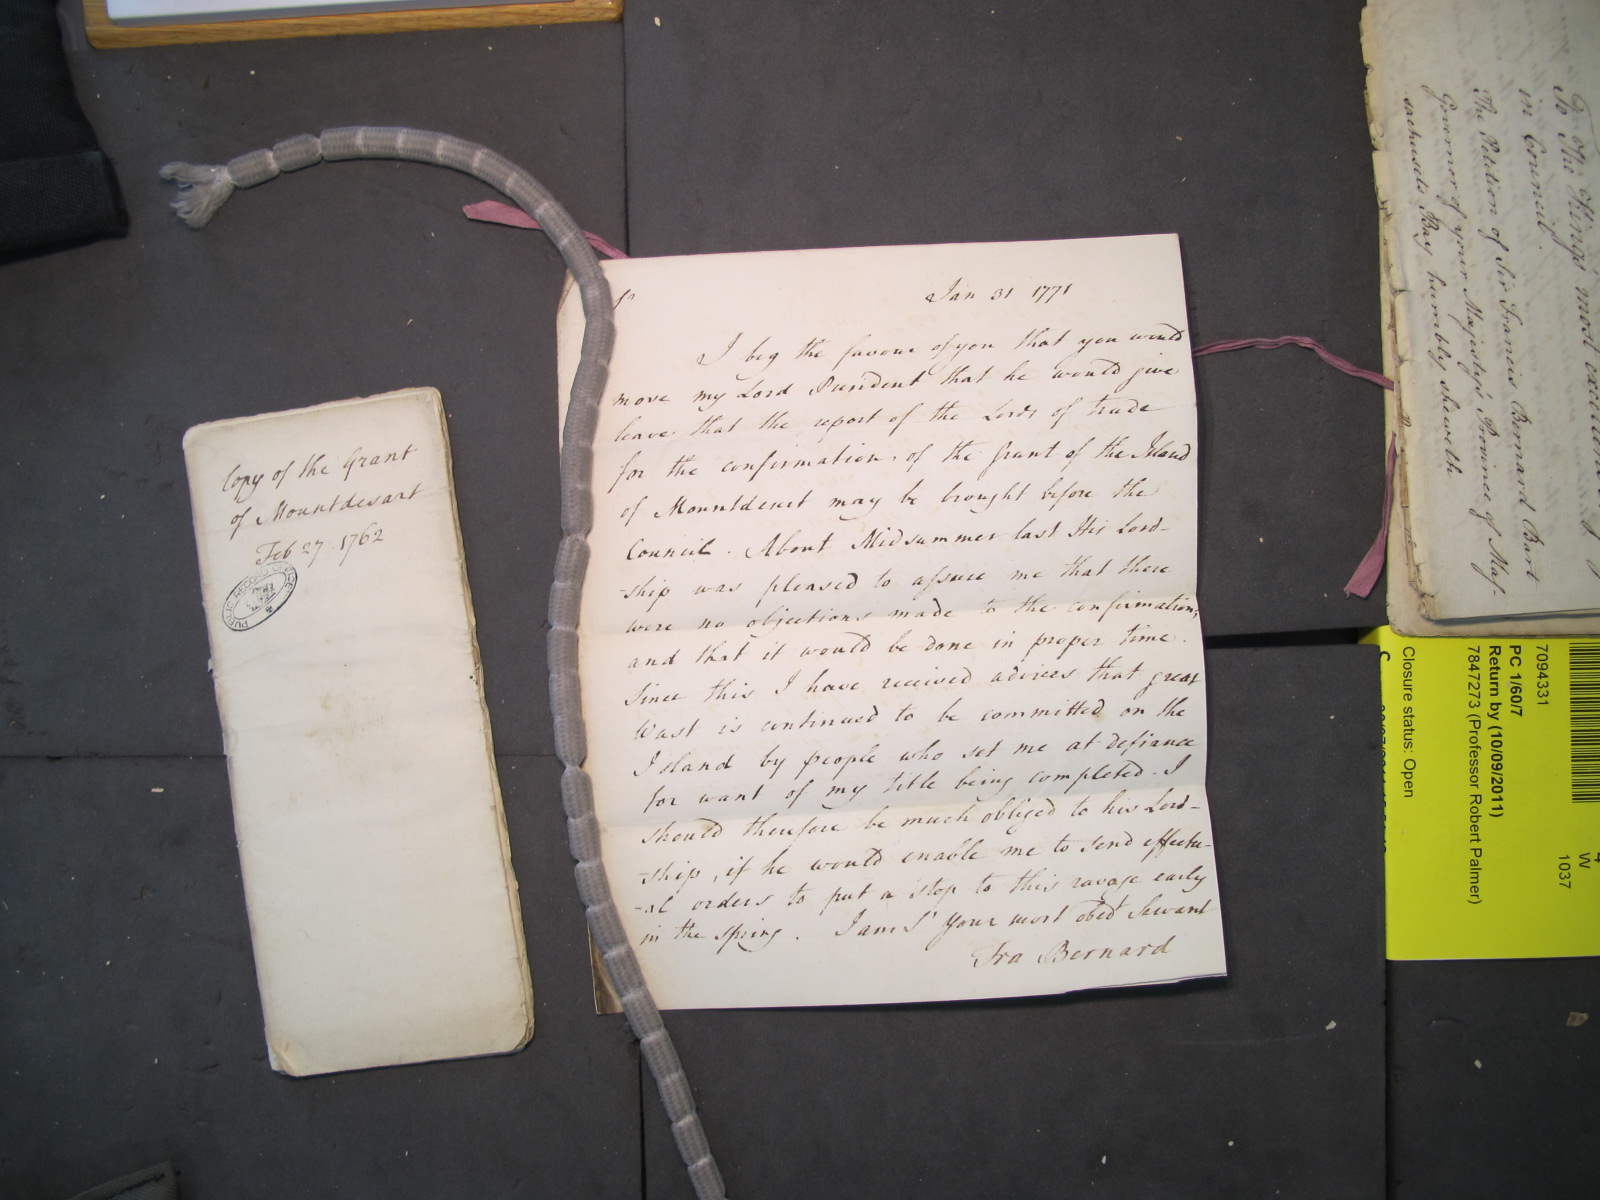 Copy of the Grant
of Mountdesart
Feb 27 1762
PUBLIC RECORD OFFICE
Sr
Jan 31 1771
I beg the favour of you that you would
move my Lord President that he would give
leave that the report of the Lords of trade
for the confirmation of the Grant of the Island
of Mountdesert may be brought before the
Council. About Midsummer last His Lord-
-ship was pleased to assure me that there
were no objections made to the confirmation,
and that it would be done in proper time.
Since this I have received advices that great
Wast is continued to be committed on the
Island by people who set me at defiance
for want of my title being completed. I
should therefore be much obliged to his Lord-
-ship, if he would enable me to send effectu-
-al orders to put a stop to this ravage early
in the spring. I am Sr Your most obedt Servant
Fra Bernard
To The King's most excellent
in Council.
The Petition of Sir Francis Bernard Bart
Governor of your Majesty's Province of Mas-
sachusets Bay humbly sheweth
7094331
PC 1/60/7
Return by (10/09/2011)
7847273 (Professor Robert Palmer)
Closure status: Open
W
1037